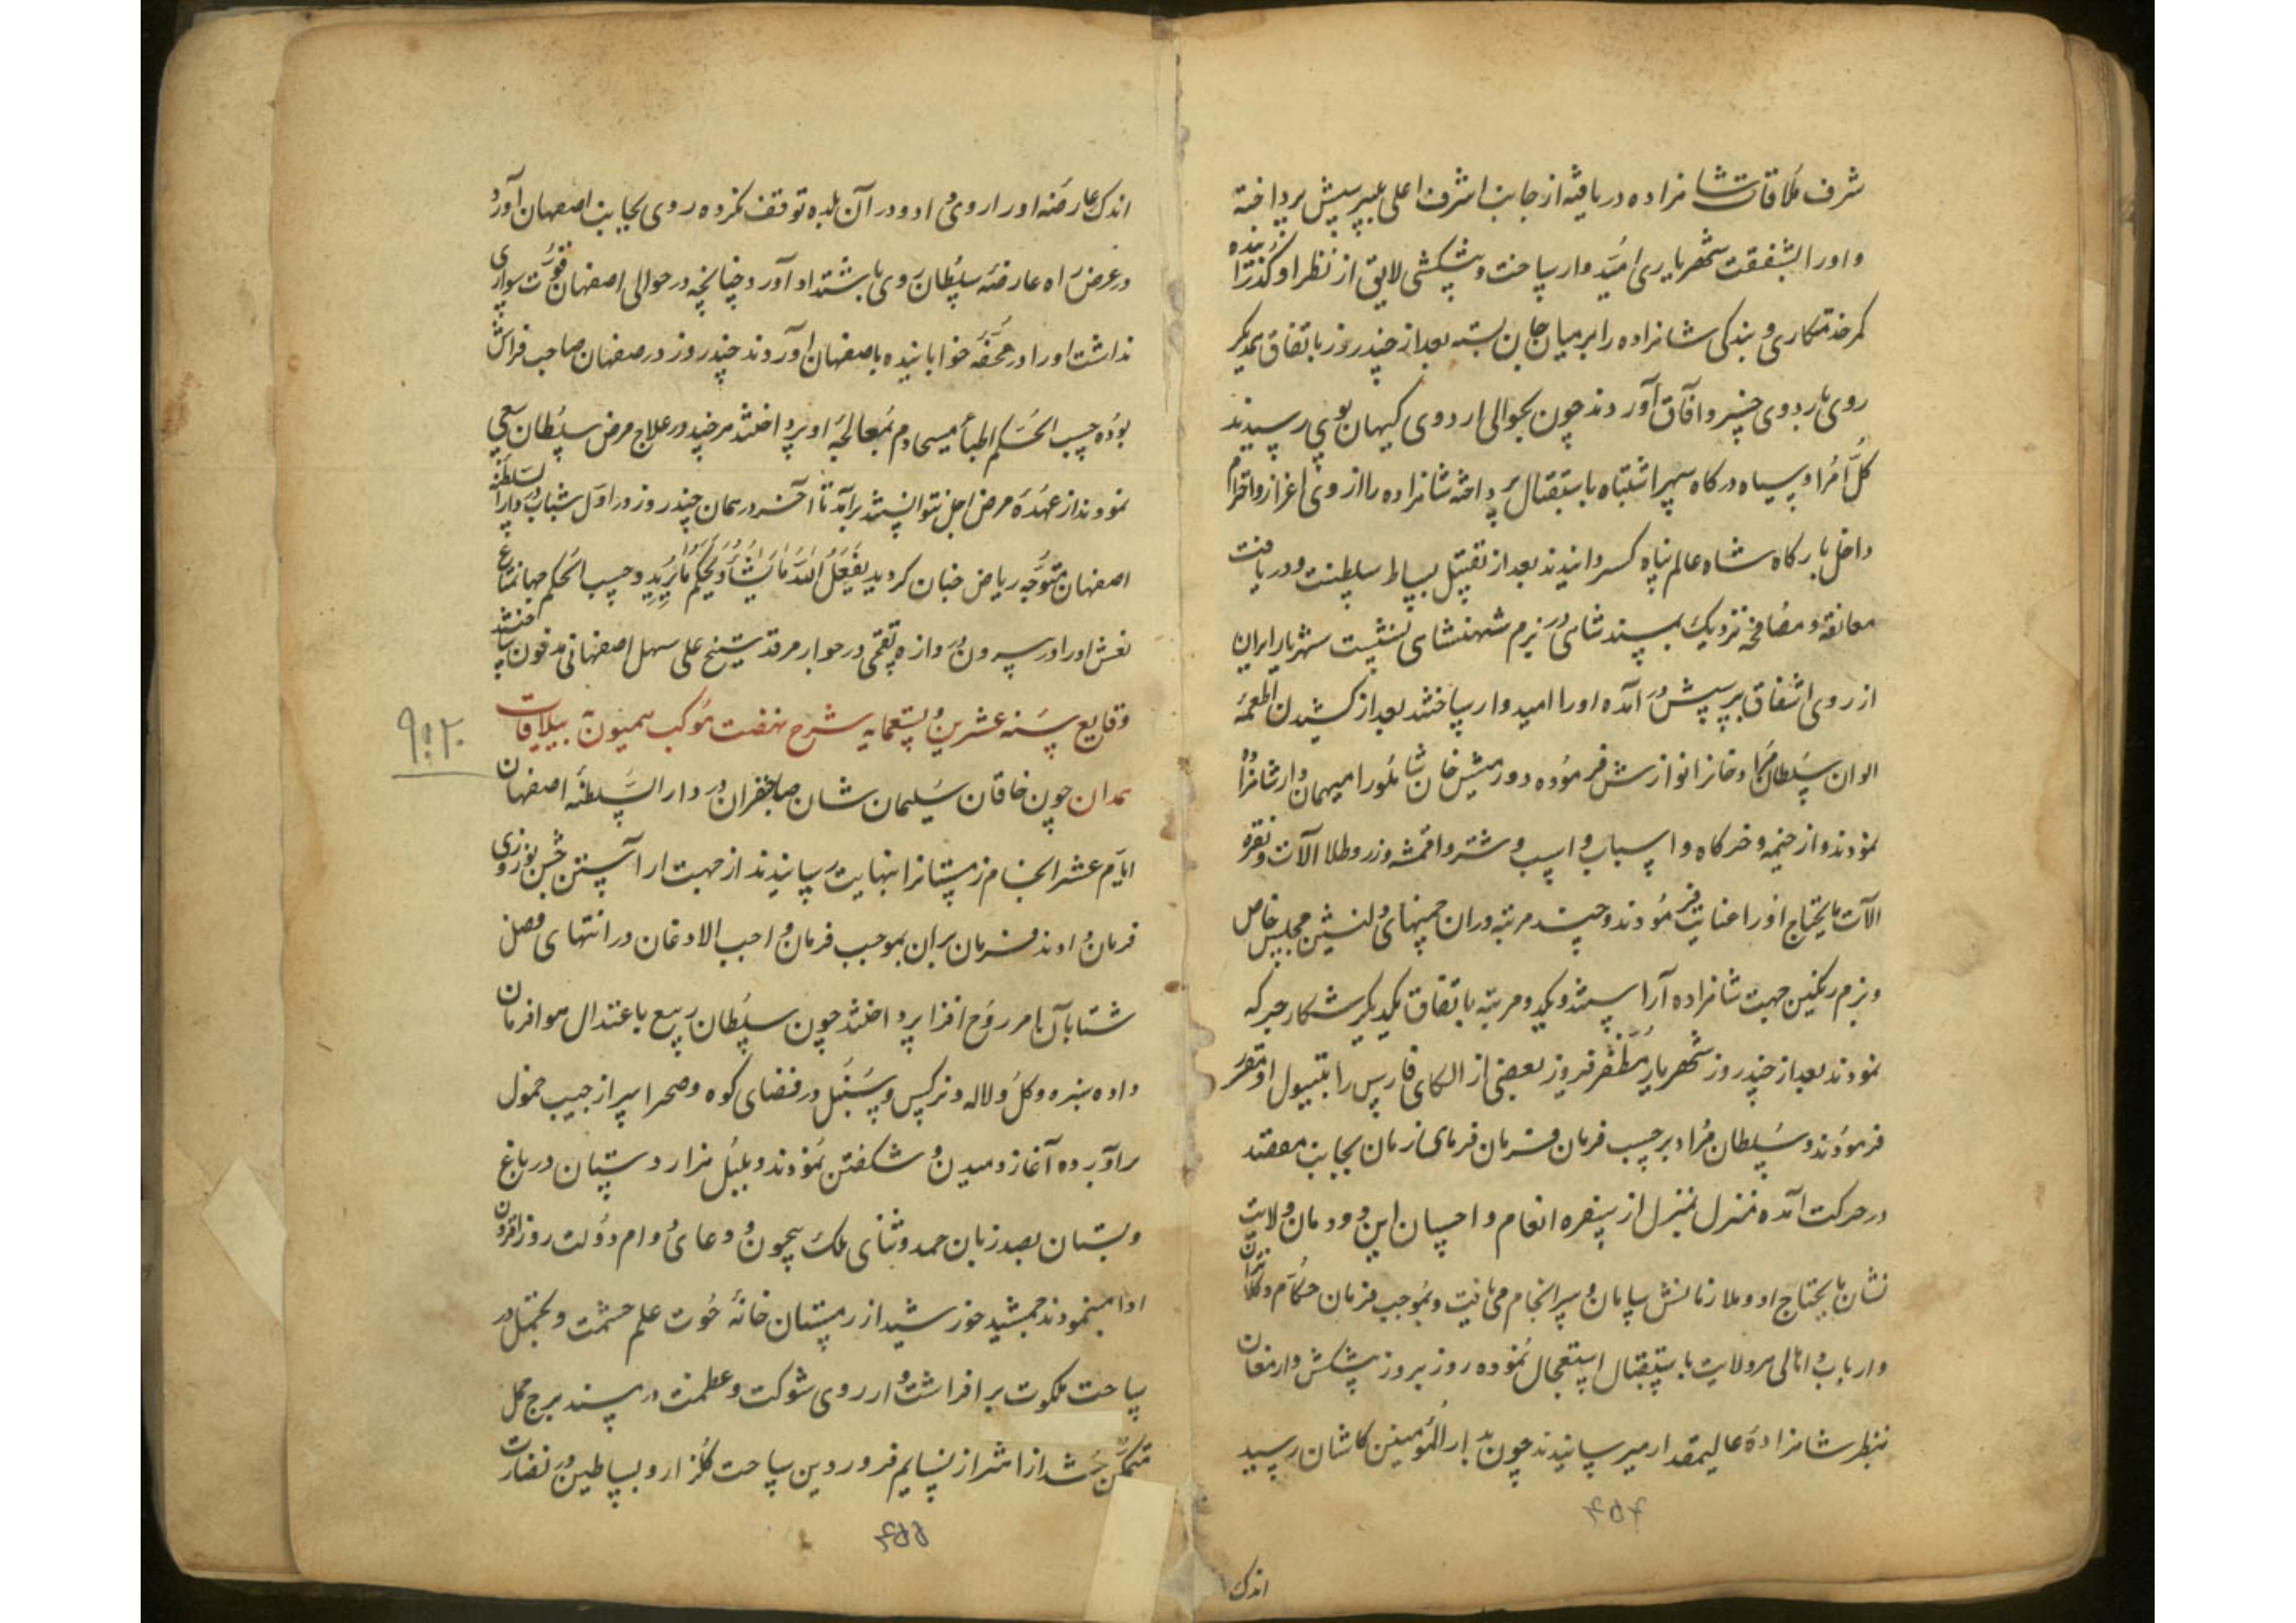 شرف ملاقات شاهزاده دریافته از جانب اشرف اعلی بپرسش پرداخته
و او را بشفقت شهریاری امیدوار ساخت و پیشکشی لایق از نظر او گذرانیده
کمر خدمتکاری و بندکی شاهزاده را بر میان جان بسته بعد از چند روز باتفاق یکدیگر
روی باردوی خسرو آفاق آوردند چون بحوالی اردوی کیهان پوی رسیدند
کل امرا و سپاه درکاه سپهر اشتباه باستقبال پرداخته شاهزاده را از روی اعزاز و احترام
داخل بارکاه شاه عالم پناه کردانیدند بعد از تقبیل بساط سلطنت و دریافت
معانقه و مصافحه نزدیک بمسند شاهی در بزم شهنشاهی نشست شهریار ایران
از روی اشفاق بپرسش در آمده او را امیدوار ساختند بعد از کشیدن اطعمه
الوان سلطان مراد خانرا نوازش فرموده دورمیش خان شاملو را میهماندار شاهزاده
نمودند و از خیمه و خرکاه و اسباب و اسب و شتر و اقمشه و زر و طلا آلات و نقره
آلات مایحتاج او را عنایت فرمودند و چند مرتبه در ان چمنهای دلنشین مجلس خاص
و بزم رنکین جهت شاهزاده آراستند و یکدو مرتبه باتفاق یکدیکر شکار جرکه
نمودند بعد از چند روز شهریار مظفر فیروز بعضی از الکای فارس را بتیول او مقرر
فرمودند و سلطان مراد بر حسب فرمان فرمان فرمای زمان بجانب مقصد
در حرکت آمده منزل بمنزل از سفره انعام و احسان این دودمان ولایت
نشان مایحتاج او و ملازمانش سامان و سرانجام می یافت و بموجب فرمان حکام و کلانتران
و ارباب و اهالی هر ولایت باستقبال استعجال نموده روز بروز پیشکش و ارمغان
بنظر شاهزاده عالیمقدار میرسانیدند چون بدار المؤمنین کاشان رسید
اندک
اندک عارضه او را روی داد و در آن بلده توقف نکرده روی بجانب اصفهان آورد
در عرض راه عارضه سلطان روی باشتداد آورد چنانچه در حوالی اصفهان قوت سواری
نداشت او را در محفه خوابانیده باصفهان آوردند چند روز در صفهان صاحب فراش
بوده حسب الحکم اطبا مسیحا دم بمعالجه او پرداختند هر چند در علاج مرض سلطان سعی
نمودند از عهده مرض اجل نتوانستند برآمد تا آخر در همان چند روز در اول شباب در دار السلطنه
اصفهان متوجه ریاض جنان کردید یفعل الله ما یشاء و یحکم ما یرید و حسب الحکم جهانمطاع
نعش او را در بیرون دروازه توقچی در جوار مرقد شیخ علی سهل اصفهانی مدفون ساختند
وقایع سنه عشرین و تسعمایه شرح نهضت موکب همیون به ییلاقات
۹۲۰
همدان چون خاقان سلیمان شان صاحبقران در دار السلطنه اصفهان
ایام عشر انجام زمستانرا بنهایت رسانیدند از جهت اراستن جشن نوروزی
فرمان دادند فرمان بران بموجب فرمان واجب الاذعان در انتهای فصل
شتا بآن امر روح افزا پرداختند چون سلطان ربیع باعتدال هوا فرمان
داده سبزه و کل و لاله و نرکس و سنبل در فضای کوه و صحرا سر از جیب خمول
برآورده آغاز دمیدن و شکفتن نمودند و بلبل هزار دستان در باغ
و بستان بصد زبان حمد و ثنای ملک بیچون و دعای دوام دولت روز افزون
ادا مینمودند جمشید خورشید از زمستان خانه حوت علم حشمت و تجمل در
ساحت ملکوت بر افراشت و از روی شوکت و عظمت در مسند برج حمل
متمکن شد از اثر از نسایم فروردین ساحت گلزار و بساطین در نضارت